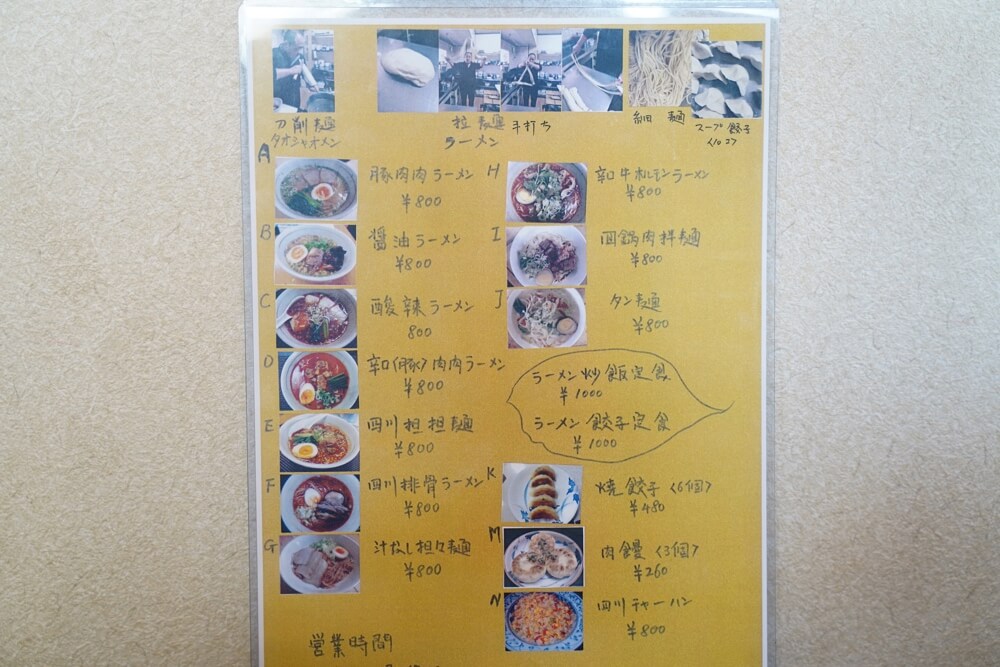 刀削麺
タオシャオメン
拉麺
ラーメン
手打ち
細麺
スープ餃子
A
豚肉肉ラーメン
¥800
B
醤油ラーメン
¥800
C
酸辣ラーメン
800
D
辛口(豚)肉肉ラーメン
¥800
E
四川担担麺
¥800
F
四川排骨ラーメン
¥800
G
汁なし担々麺
¥800
H
辛口牛ホルモンラーメン
¥800
I
回鍋肉拌麺
¥800
J
タン麺
¥800
ラーメン炒飯定食
¥1000
ラーメン餃子定食
¥1000
K
焼餃子〈6個〉
¥480
M
肉饅〈3個〉
¥260
N
四川チャーハン
¥800
営業時間